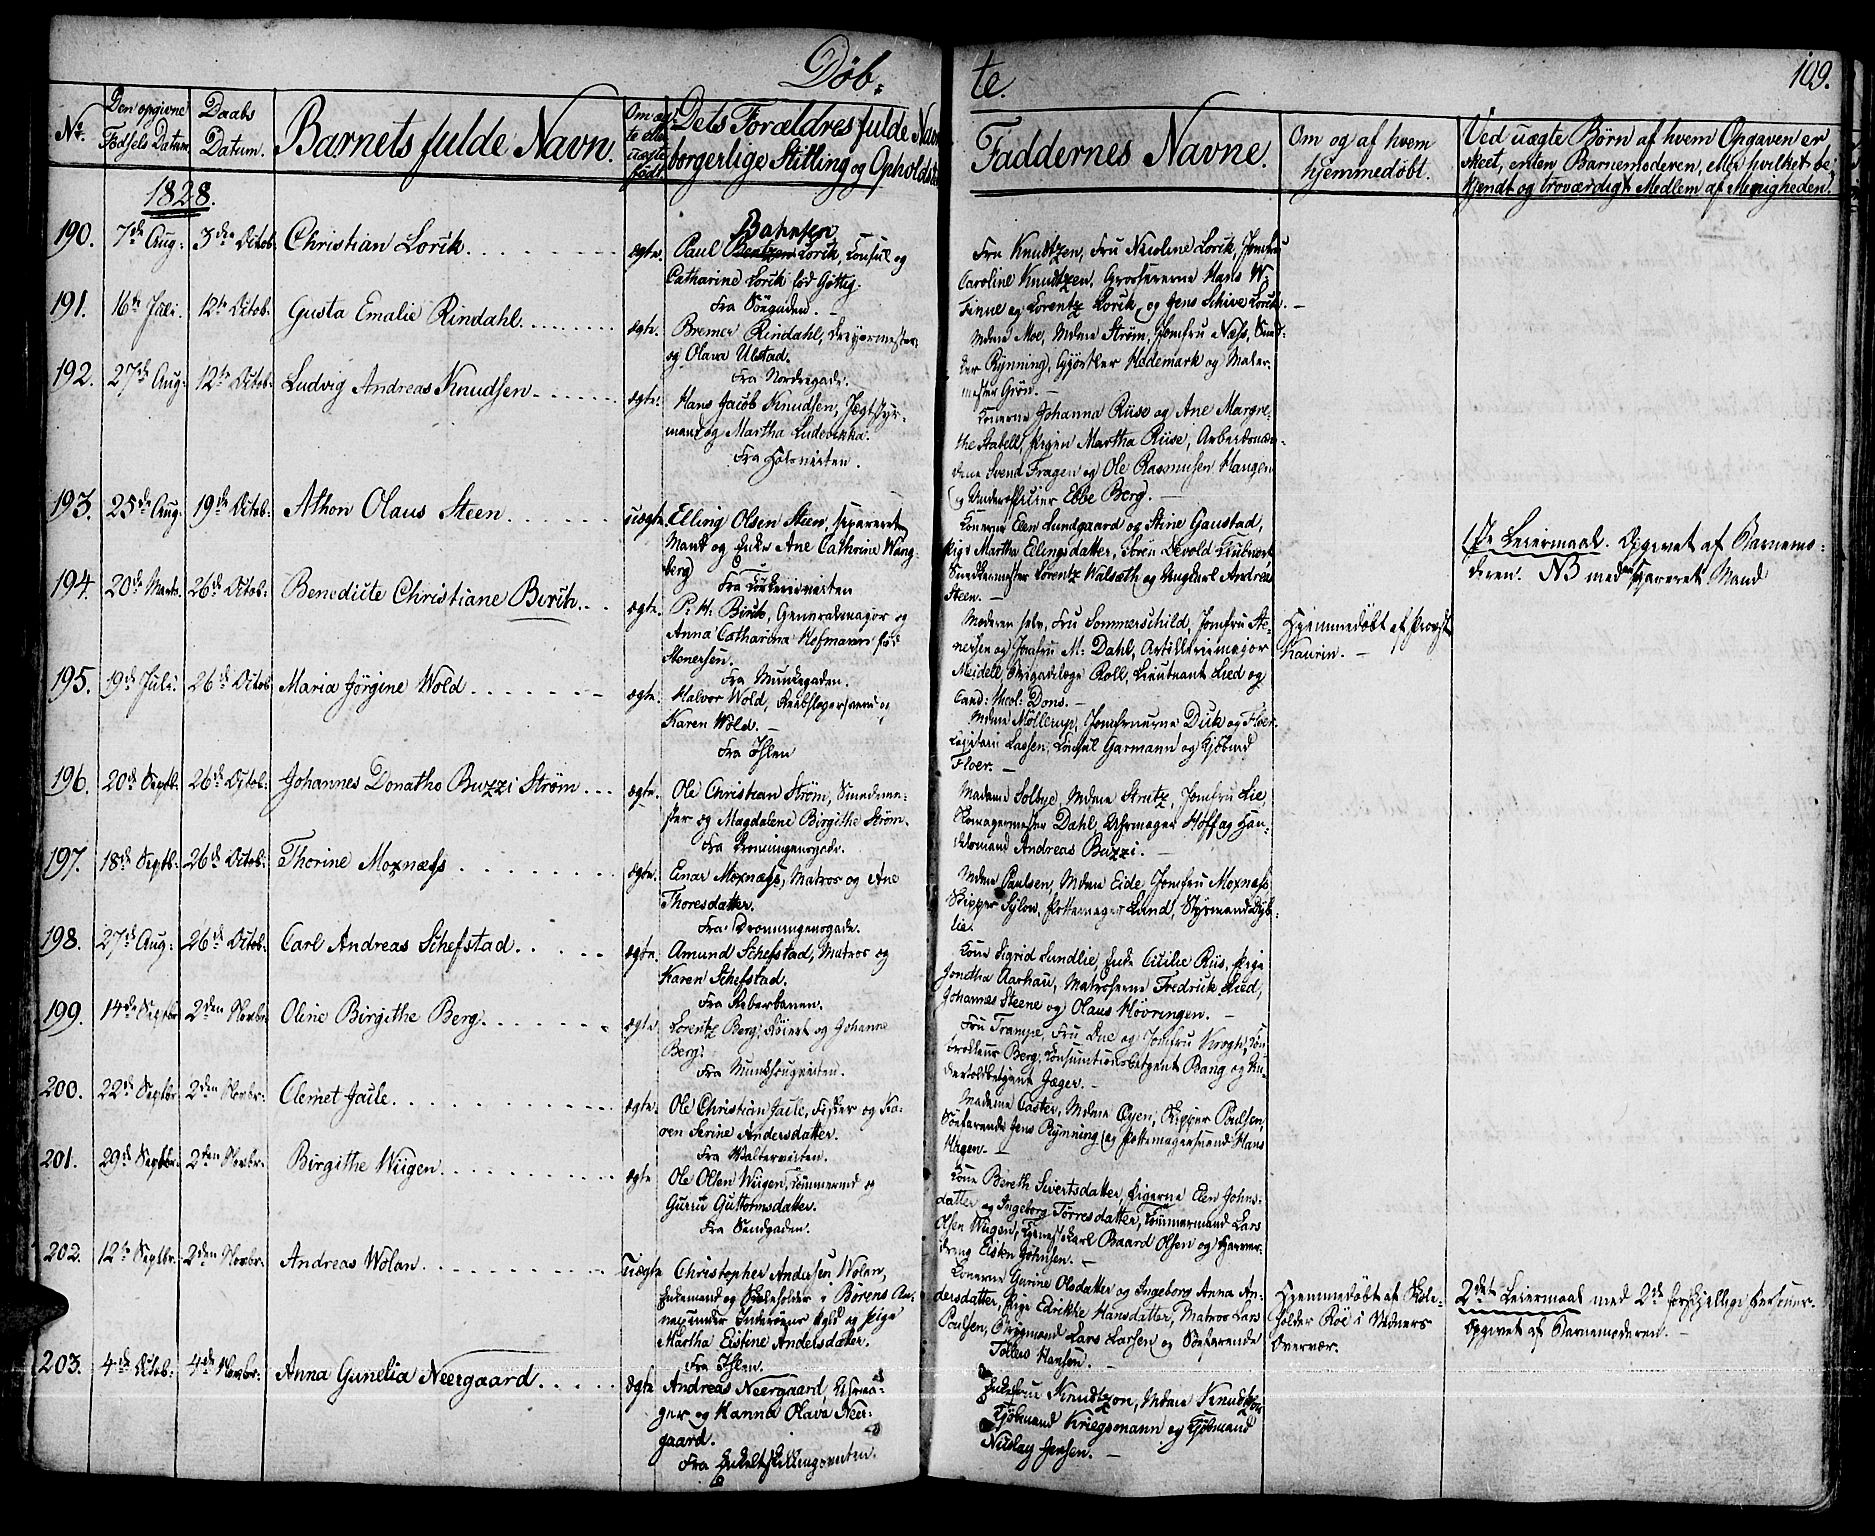 Døb-
te.
109.
No.
Den opgivne
Fødsels Datum.
Daabs
Datum.
Barnets fulde Navn.
Om æg-
te eller
uægte
født
Dets Forældres fulde Navn
borgerlige Stilling og Opholdsted
Faddernes Navne.
Om og af hvem
hjemmedøbt.
Ved uægte Børn af hvem Opgaven er
skeet, enten Barnemoderen, eller hvilket be-
kjendt og troværdigt Medlem af Menigheden.
1828.
190. 7de Aug: 3die Octob: Christian Lorck. ægte.
Bahnsen
Paul Lorck, Consul og
Catharine Lorck fød
Fra Søegaden.
Fru Knudtzon, Fru Nicoline Lorck, Jomfru
Caroline Knudtzon, Grosserererne Hans W.
Finne og Lorentz Lorck, og Jens Schive Lorck.
191. 16de Juli. 12te Octob: Gusta Emalie Rindahl. ægte.
Bremer Rindahl, Dreyermester
og Olava Ulstad.
Fra Nordregade.
Mdme Moe, Mdme Strøm, Jomfru Næss, Sned-
ker Rynning, Gjørtler Hedemark og Maler-
mester Grøn.
192. 27de Aug: 12te Octob: Ludvig Andreas Knudsen ægte.
Hans Jacob Knudsen, Jægtstyr-
mand og Martha Ludevikka.
Konerne Johanna Riise og Ane Margre-
the Stabell, Pigen Martha Riise, Arbeidsmæn-
dene Svend Fragen og Ole Rasmusen Haugen
og Underofficier Ebbe Berg.
193. 25de Aug: 19de Octob: Athon Olaus Steen. uægte.
Elling Olsen Steen, separeret
Mand og Enke Ane Cathrine Wang-
berg
Konerne Elen Lundgaard og Stine Gaustad,
Pige Martha Ellingsdatter, Søren Devold
Snedkermester Lorentz Walsæth og Ungkarl Andreas
Steen.
1ste Leiermaal. Opgivet af Barnemo-
deren. NB med separeret Mand
194. 20de Marts. 26de Octob: Benedicte Christiane Birch. ægte.
P: H: Birch, Generalmajor og
Anna Catharina Hofmann fød
Stenersen.
Fra Munkegaden.
Moderen selv, Fru Sommerschild, Jomfru Ste-
nersen og Jomfru M: Dahl, Artillerimajor
Meidell, Brigadelæge Roll, Lieutnant Lied og
Cand: Theol: Dons.
Hjemmedøbt af Provst
Kaurin.
195. 19de Juli. 26de Octob: Maria Jørgine Wold ægte.
Halvor Wold, Rebslagersvend og
Karen Wold.
Fra Ihlen
Mdme Møllerup, Jomfruerne Dick og Floer.
Lassen, Consul Garmann og Kjøbmd
Floer.
196. 20de Septb. 26de Octob: Johannes Donatho Buzzi Strøm ægte.
Ole Christian Strøm, Smedeme-
ster og Magdalene Birgithe Strøm.
Fra Dronningensgade.
Madame Solbye, Mdme Strutz, Jomfru Lie,
Skomagermester Dahl, Uhrmager Hoff og Han-
delsmand Andreas Buzzi.
197. 18de Septb: 26de Octob: Thorine Moxnæss ægte.
Einar Moxnæss, Matros og Ane
Thoresdatter.
Fra Dronningensgade.
Mdme Paulsen, Mdme Eide, Jomfru Moxnæss
Skipper Sylow, Pottemager Lund, Styrmand
198. 27de Aug: 26de Octob: Carl Andreas Schefstad. ægte.
Amund Schefstad, Matros og
Karen Schefstad.
Fra Reberbanen.
Kone Sigrid Lundlie, Enke Cicilie Riis, Pige
Jondtha Aarhau, Matroserne Fredrick Lied,
Johannes Steene og Olaus Høvringen.
199. 14de Septbr 2den Novbr. Oline Birgithe Berg. ægte.
Lorentz Berg, og Johanne
Berg.
Fru Trampe, Fru Due og Jomfru Krogh, Con-
trolleur Berg, Consumtionsbetjent Bang og Un-
dertoldbetjent Jæger.
200. 22de Septbr. 2den Novbr. Clemet Jaile. ægte.
Ole Christian Jaile, Fisker og Ka-
ren Serine Andersdatter.
Madame Caster, Mdme Øyen, Skipper Poulsen,
Søefarende Jens Rynning og Pottemagersvend Hans
Hagen.
201. 29de Septbr. 2den Novbr. Birgithe Wiigen. ægte
Ole Olsen Wiigen, Tømmermd og
Gurru Guttormsdatter.
Fra Sandgaden.
Kone Bereth Sivertsdatter, Pigerne Elen Johns-
datter og Ingeborg Torresdatter, Tømmermand Lars
Olsen Wiigen, Tjenestekarl Baard Olsen og
dreng Johnsen.
202. 12te Septbr. 2den Novbr. Andreas Wolan. uægte
Christopher Andersen Wolan,
Enkemand og Skoleholder i Børsens An-
nex under Inderøens og Pige
Martha Eistine Andersdatter.
Fra Ihlen.
Konerne Gurine Olsdatter og Ingeborg Anna An-
dersdatter, Pige Edvikke Hansdatter, Matros Lars
Poulsen, Lars Larsen og Søefarende
Tollers Hansen.
Hjemmedøbt af Skole-
holder Roe i Vidners
Overvær.
2det Leiermaal med 2de forskjellige Personer.
Opgivet af Barnemoderen.
203. 4de Octob: 4de Novbr. Anna Gunelia Neergaard. ægte
Andreas Neergaard, Uhrma-
ger og Hanna Olava Neer-
gaard.
Fra Enkeltskillingsveiten.
Enkefrue Knudtzon, Mdme Knudtzon
Kjøbmand Kriegsmann og Kjøbmand
Nicolay Jensen.